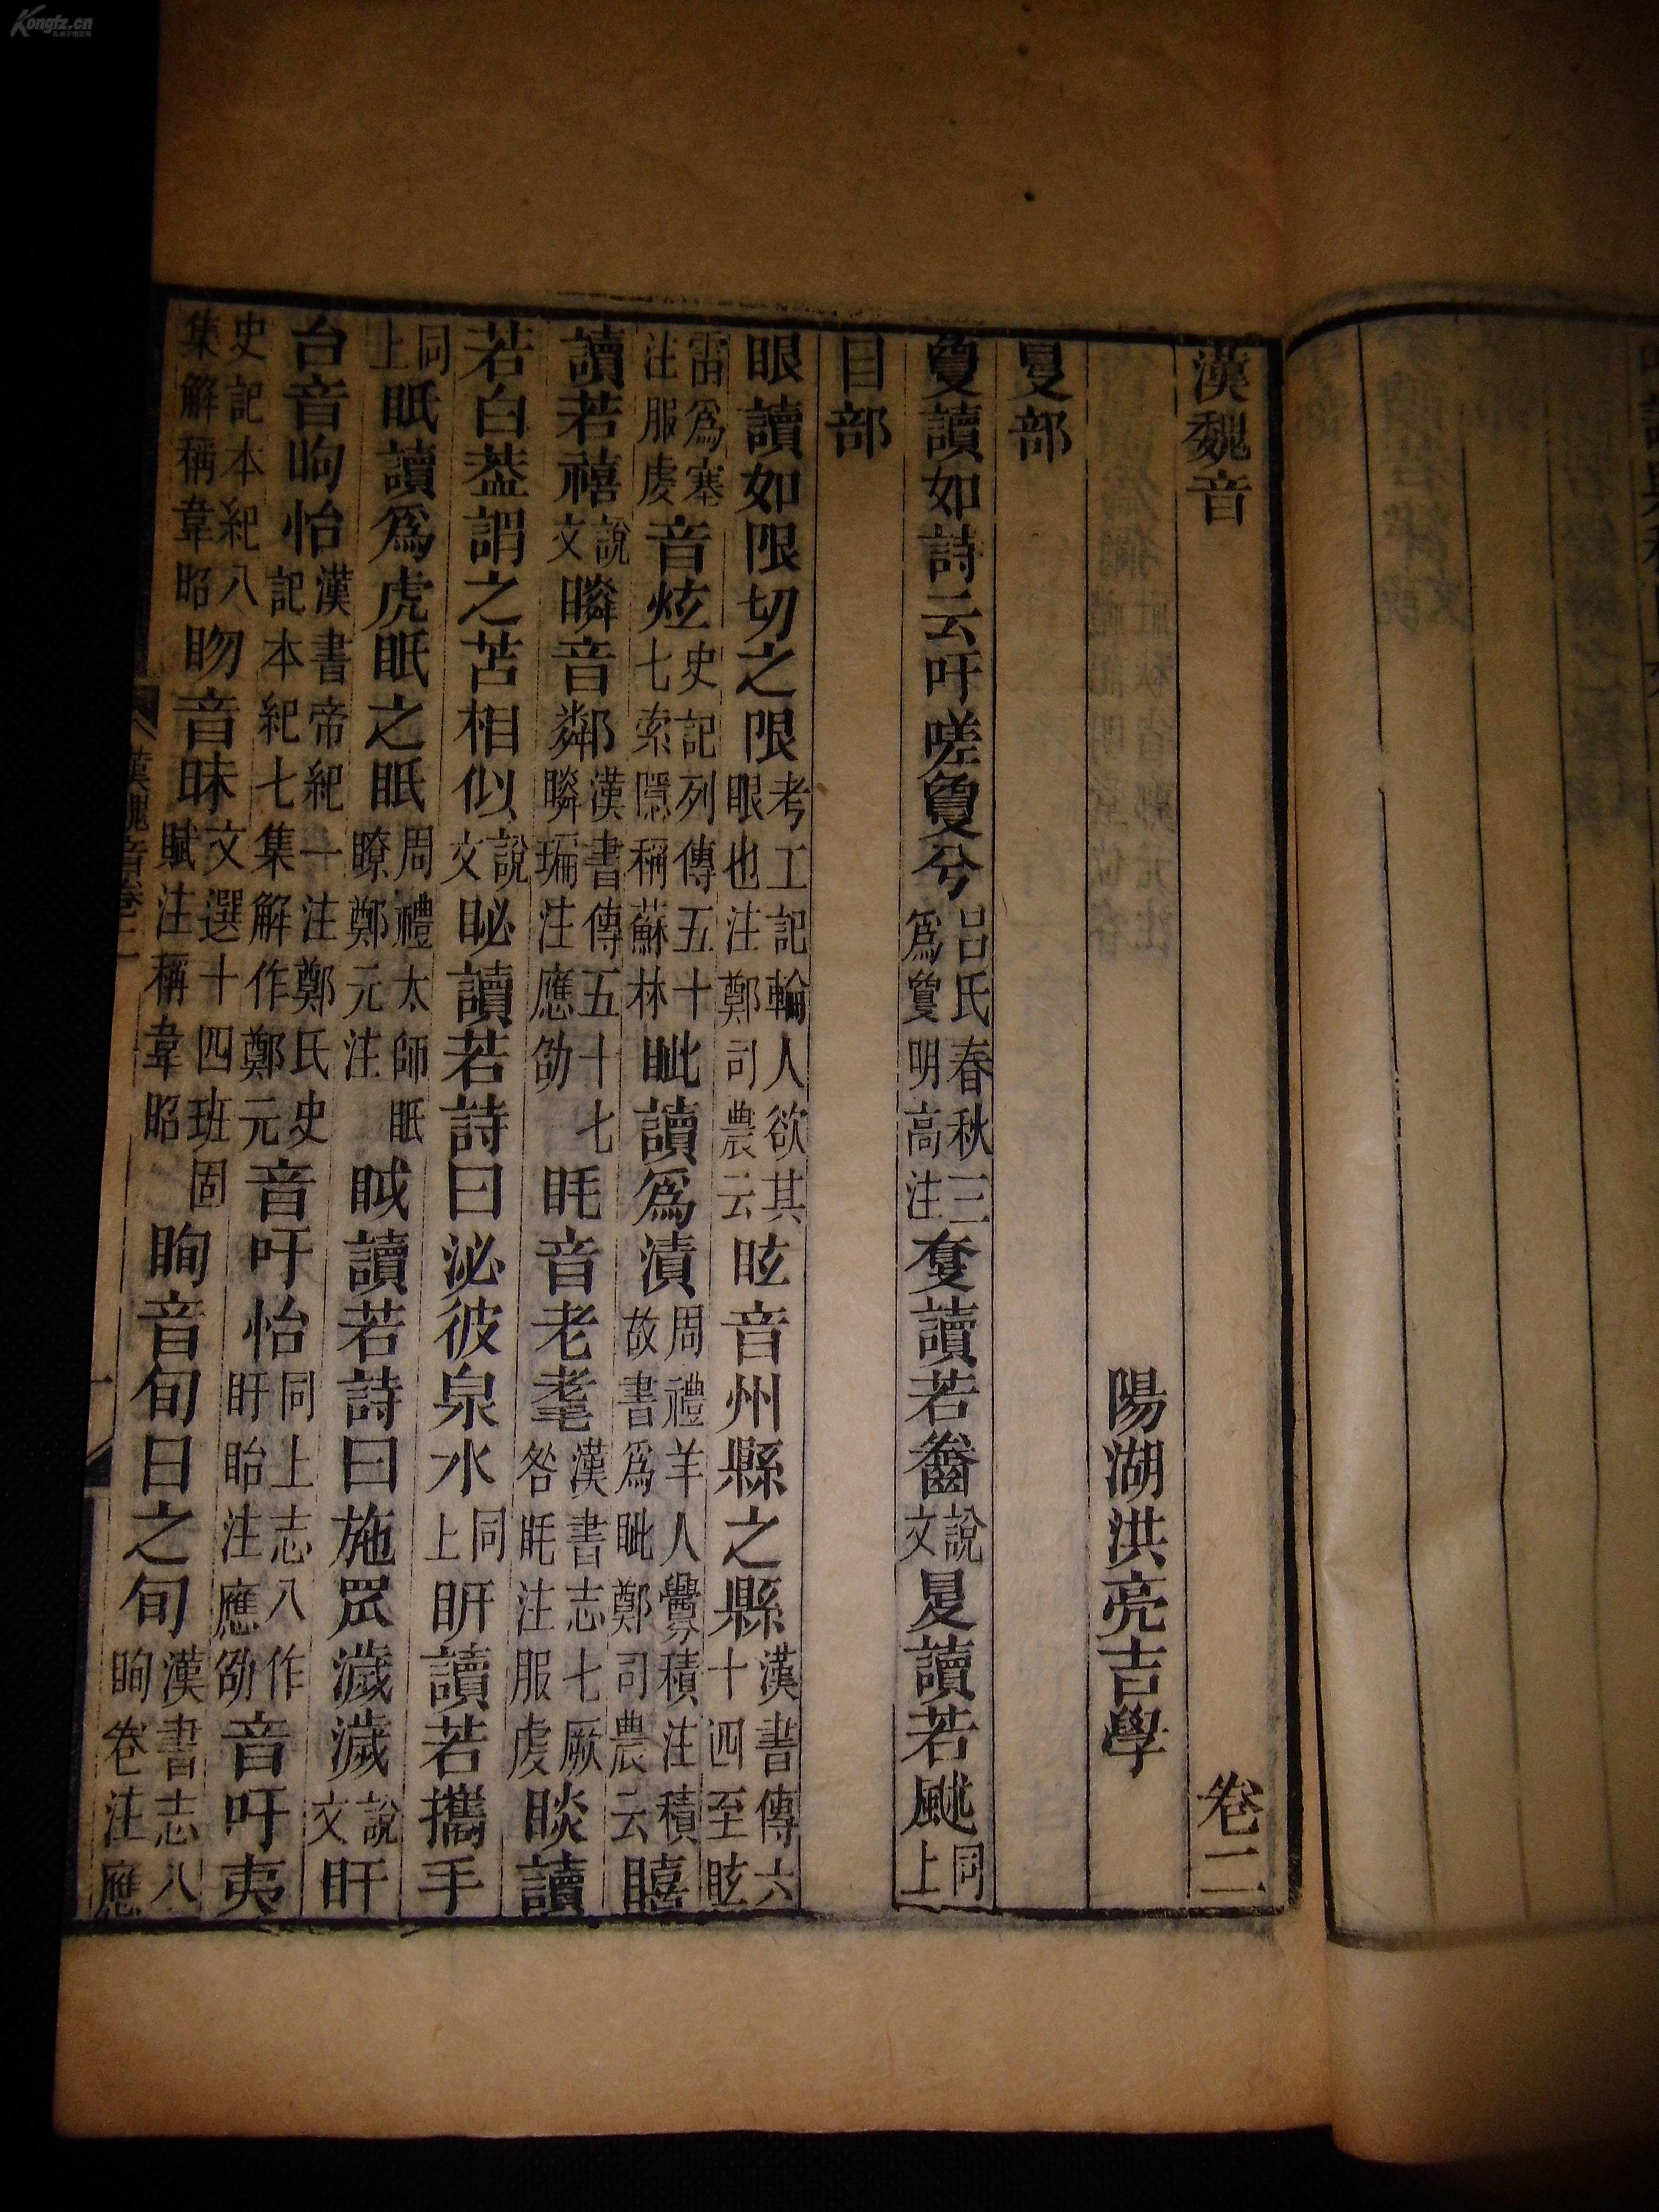 漢魏音 卷二
陽湖洪亮吉學
夐部
夐讀如詩云吁嗟夐兮 呂氏春秋三明高注 讀若 說文 夐讀若颫 同上
目部
眼讀如限切之限 考工記輪人欲其眼也注鄭司農云 眩音州縣之縣 漢書傳六十四至眩
雷爲塞注服虔 音炫 史記列傳五十七索隱稱蘇林 眦讀爲漬 周禮羊人釁積注積故書爲眦鄭司農云 瞦
讀若禧 說文 瞵音鄰 漢書傳五十七瞵㻞注應劭 眊音老耄 漢書志七厥咎眊注服虔 睒讀
若白葢謂之苫相似 說文 眣讀若詩曰泌彼泉水 同上 盱讀若攜手
同上 眠讀爲虎眠之眠 周禮太師眠瞭鄭元注 眓讀若詩曰施罛濊濊 說文 盱
台音昫怡 漢書帝紀一注鄭氏史記本紀七集解作鄭元 音吁怡 同上志八盱眙注應劭作 音吁夷
史記本紀八集解稱韋昭 昒音昧 文選十四班固賦注稱韋昭 眴音旬日之旬 漢書志八眴卷注應
漢魏音卷二
一
Kongfz.cn